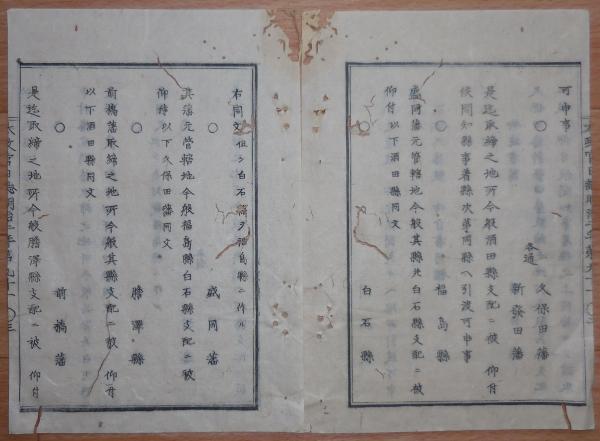 可申事
○
各通
久保田藩
新發田藩
是迄取締之地所今般酒田縣支配ニ被 仰付
候間知縣事着縣次第同縣ヘ引渡可申事
○
福島縣
盛岡藩元管轄地今般其縣北白石縣支配ニ被
仰付以下酒田縣同文
○
白石縣
右同文但シ白石縣ヲ福島縣ニ作ル
○
盛岡藩
其藩元管轄地今般福島縣白石縣支配ニ被
仰付以下久保田藩同文
○
膽澤縣
前橋藩取締之地所今般其縣支配ニ被 仰付
以下酒田縣同文
○
前橋藩
是迄取締之地所今般膽澤縣支配ニ被 仰付